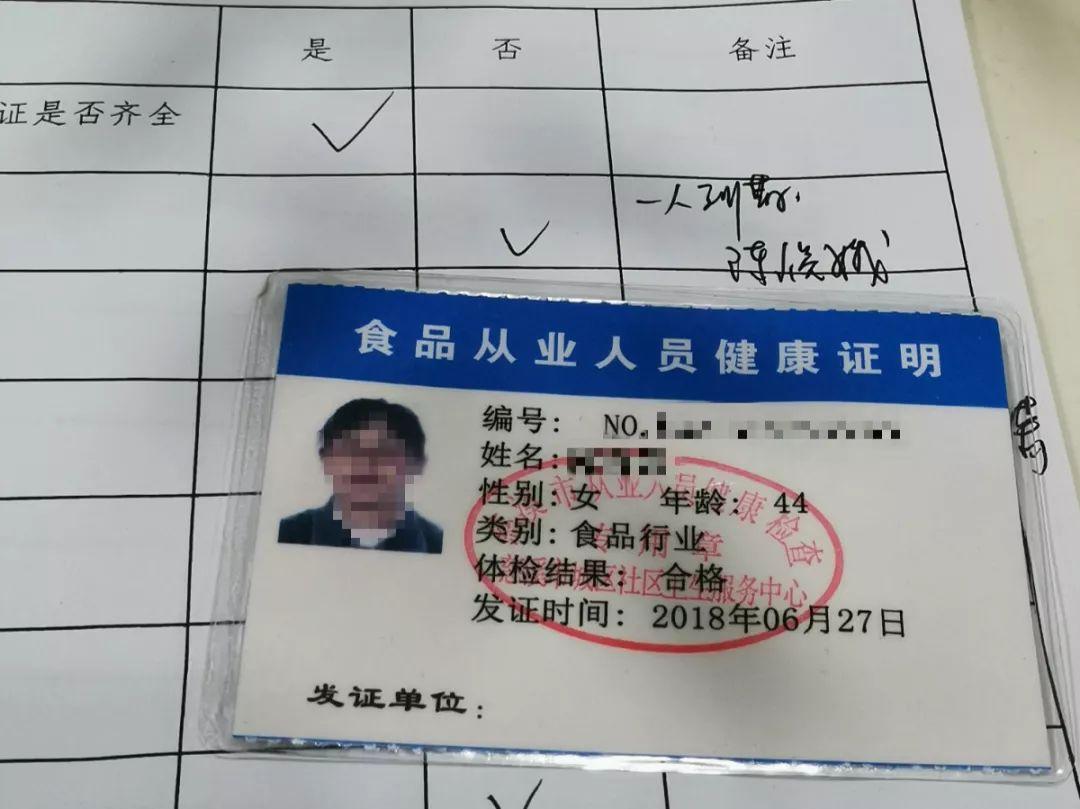 是 否 备注
证是否齐全
一人到期,
食品从业人员健康证明
编号: NO.
姓名:
性别: 女 年龄: 44
类别: 食品行业
体检结果: 合格
发证时间: 2018年06月27日
市从业人员健康检查
专用章
城区社区卫生服务中心
发证单位: